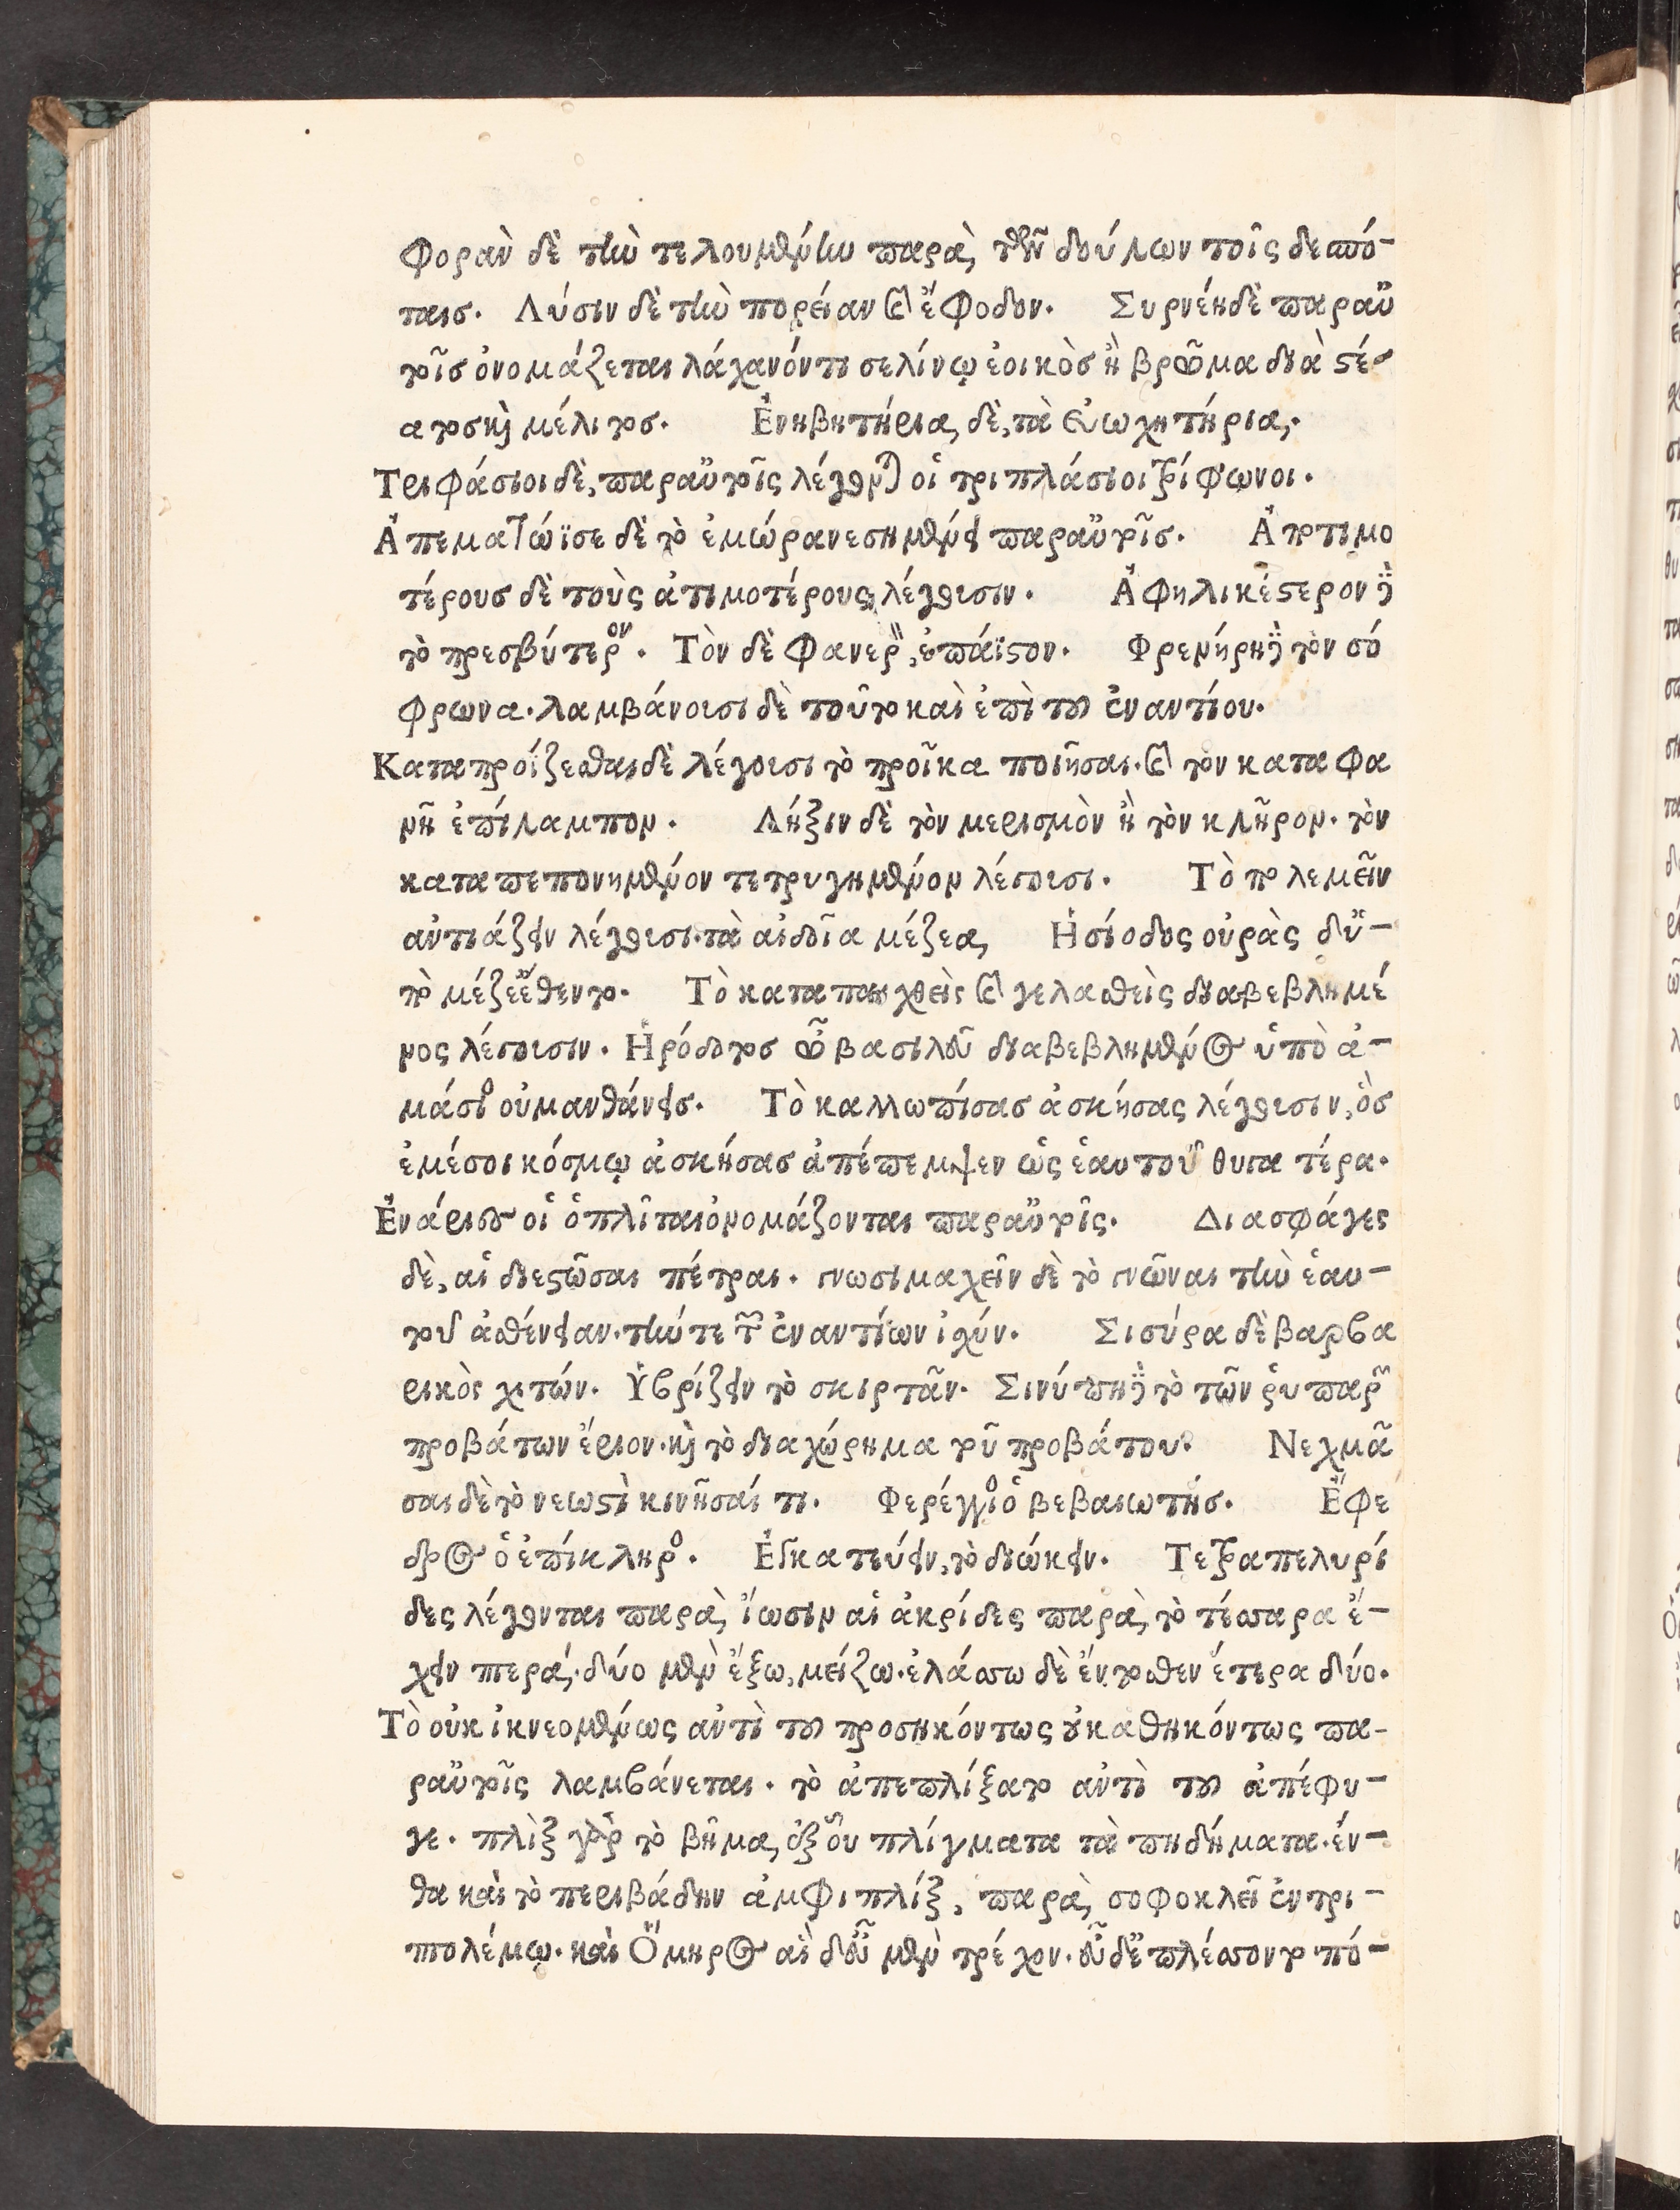 φορὰν δὲ τὴν τελουμένην παρὰ τῶν δούλων τοῖς δεσπό-
ταισ. Λύσιν δὲ τὴν πορείαν καὶ ἔφοδον. Συρνέη δὲ παραὐ
τοῖσ ὀνομάζεται λάχανόν τι σελίνῳ ἐοικὸσ ἢ βρῶμα διὰ στέ-
ατοσ καὶ μέλιτοσ. Ἐνηβητήρια δὲ, τὰ εὐωχητήρια.
Τριφάσιοι δὲ, παραὐτοῖς λέγονται οἱ τριπλάσιοι τρίφωνοι.
Ἀπεματώϊσε δὲ τὸ ἐμώρανε σημαίνει παραὐτοῖσ. Ἀπτιμο
τέρουσ δὲ τοὺς ἀτιμοτέρους λέγουσιν. Ἀφηλικέστερον δὲ
τὸ πρεσβύτερον. Τὸν δὲ φανερὸν, ἐπάϊστον. Φρενήρη δὲ τὸν σό
φρωνα. λαμβάνουσι δὲ τοῦτο καὶ ἐπὶ τοῦ ἐναντίου.
Καταπροΐζεσθαι δὲ λέγουσι τὸ προῖκα ποιῆσαι. καὶ τὸν καταφα
νῆ ἐπίλαμπον. Λῆξιν δὲ τὸν μερισμὸν ἢ τὸν κλῆρον. τὸν
καταπεπονημένον τετρυγημένον λέγουσι. Τὸ πολεμεῖν
ἀντιάζειν λέγουσι. τὰ αἰδοῖα μέζεα, Ἡσίοδος οὐρὰς δὔ-
πο μέζε ἔθεντο. Τὸ καταπαιχθεὶς καὶ γελασθεὶς διαβεβλημέ
νος λέγουσιν. Ἡρόδοτοσ ὦ βασιλεῦ διαβεβλημένος ὑπὸ ἀ-
μάσιος οὐ μανθάνεισ. Τὸ καλλωπίσασ ἀσκήσας λέγουσιν, ὃσ
ἐμέσοι κόσμῳ ἀσκήσασ ἀπέπεμψεν ὡς ἑαυτοῦ θυγατέρα.
Ἐνάριστοι οἱ ὁπλῖται ὀνομάζονται παραὐτοῖς. Διασφάγες
δὲ, αἱ διεστῶσαι πέτραι. γνωσιμαχεῖν δὲ τὸ γνῶναι τὴν ἑαυ-
τοῦ ἀσθένειαν. τήν τε τῶν ἐναντίων ἰσχύν. Σισύρα δὲ βαρβα
ρικὸς χιτών. Ὑβρίζειν τὸ σκιρτᾶν. Σινύπη δὲ τὸ τῶν ῥυπαρῶν
προβάτων ἔριον. καὶ τὸ διαχώρημα τοῦ προβάτου. Νεχμᾶ
σαι δὲ τὸ νεωστὶ κινῆσαί τι. Φερέγγυος ὁ βεβαιωτήσ. Ἔφε
δρος ὁ ἐπίκληρος. Ἑγκατεύειν, τὸ διώκειν. Τετραπελυρί
δες λέγονται παρὰ ἴωσιν αἱ ἀκρίδες παρὰ τὸ τέσσαρα ἔ-
χειν πτερά. δύο μὲν ἔξω, μείζω. ἐλάσσω δὲ ἔντοθεν ἕτερα δύο.
Τὸ οὐκ ἱκνεομένως ἀντὶ τοῦ προσηκόντως οὐ καθηκόντως πα-
ραὐτοῖς λαμβάνεται. τὸ ἀπεπλίξατο ἀντὶ τοῦ ἀπέφυ-
γε. πλὶξ γὰρ τὸ βῆμα, ἐξ οὗ πλίγματα τὰ πηδήματα. ἔν-
θα καὶ τὸ περιβάδην ἀμφιπλίξ, παρὰ σοφοκλεῖ ἐν τρι-
πτολέμῳ. καὶ Ὅμηρος αἱ δ εὖ μὲν τρέχον. εὖ δὲ πλέσσοντο πό-